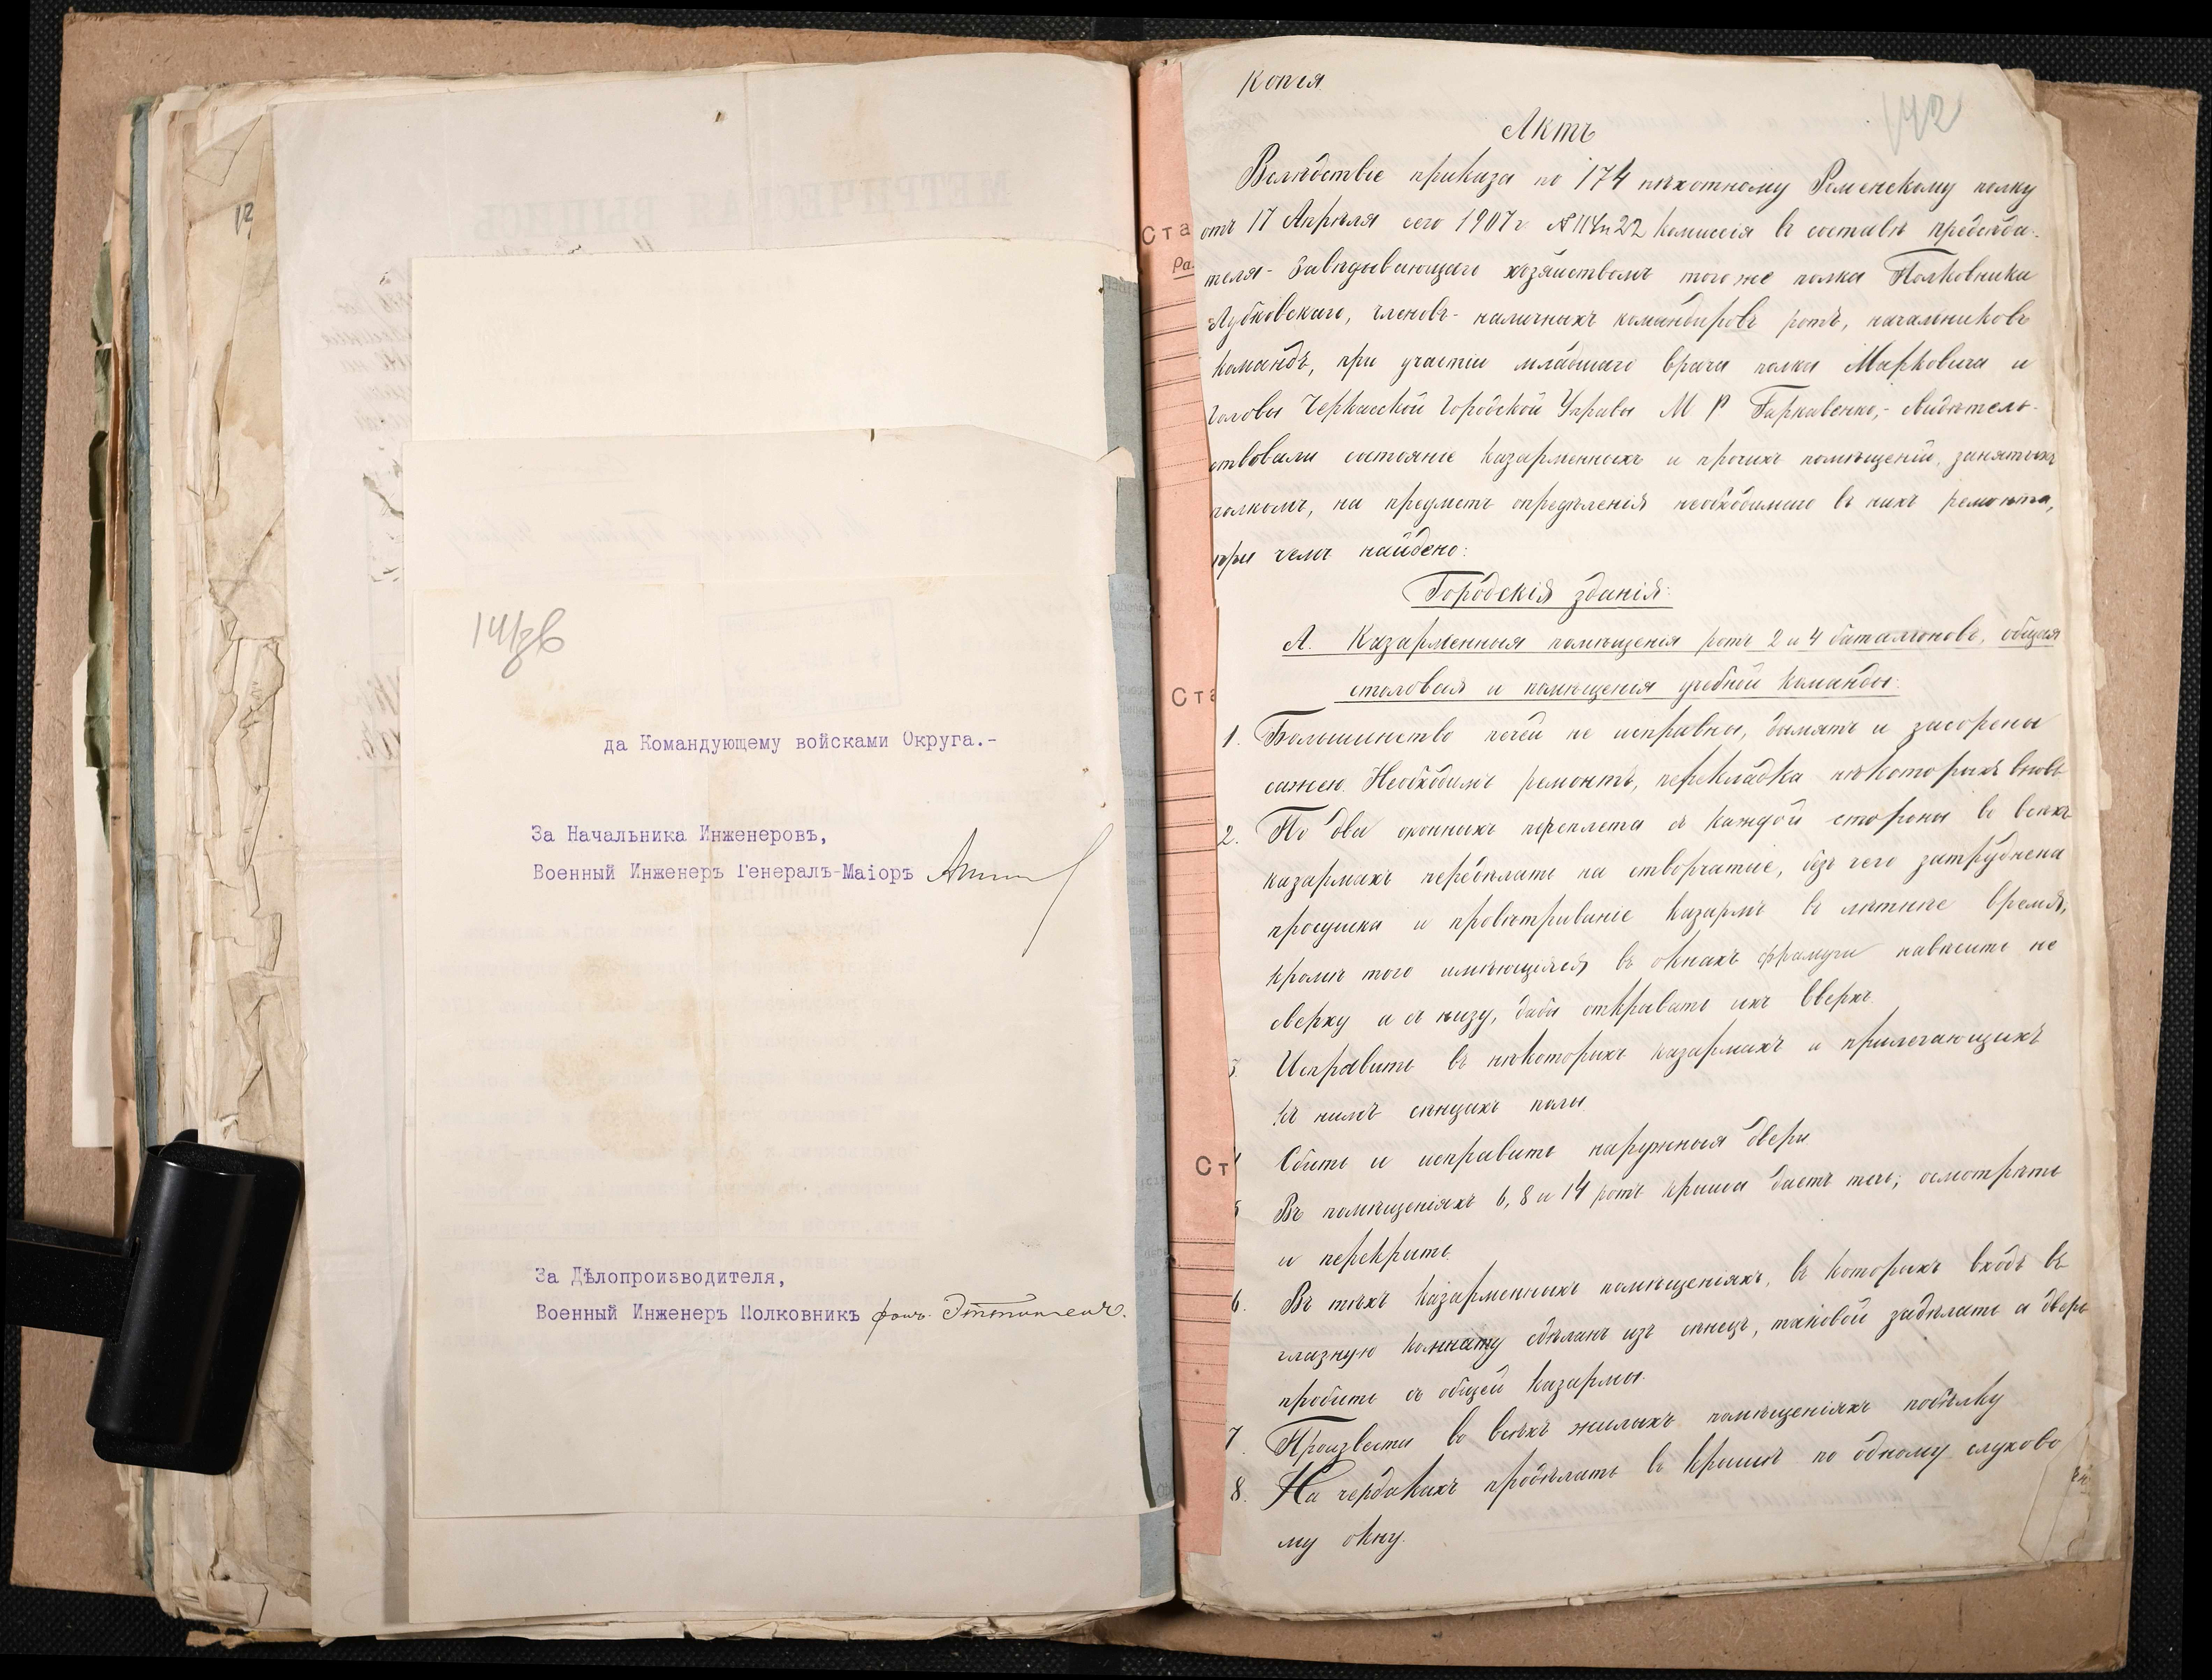 да Командующему войсками Округа.-
За Начальника Инженеровъ,
Военный Инженеръ Генералъ-Маіоръ
За Дѣлопроизводителя,
Военный Инженеръ Полковникъ фонъ
Копія
142
Актъ
Вслѣдствіе приказа по 174 пѣхотному Роменскому полку
отъ 17 Апрѣля сего 1907 г. комиссія въ составѣ предсѣда-
теля - Завѣдывающаго хозяйствомъ того же полка Полковника
Дубковскаго, членовъ - наличныхъ командировъ ротъ, начальниковъ
командъ, при участіи младшаго врача полка Марковича и
Головы Черкасской Городской Управы М Р Гаркавенко, - свидѣтель-
ствовали состояніе казарменныхъ и прочихъ помѣщеній, занятыхъ
полкомъ, на предметъ опредѣленія необходимаго въ нихъ ремонта,
при чемъ найдено:
Городскія зданія:
А. Казарменныя помѣщенія ротъ 2 и 4 баталіоновъ, общая
столовая и помѣщенія учебной команды:
1. Большинство печей не исправны, дымятъ и засорены
сажею. Необходимъ ремонтъ, перекладка нѣкоторыхъ вновь
2. По два оконныхъ переплета съ каждой стороны во всѣхъ
казармахъ передѣлать на створчатые, безъ чего затруднена
просушка и провѣтриваніе казармъ въ лѣтнее время,
кромѣ того имѣющіяся въ окнахъ фрамуги навѣсить не
сверху а съ низу, дабы открывать ихъ вверхъ.
3. Исправить въ нѣкоторыхъ казармахъ и прилегающихъ
къ нимъ сѣнцахъ полы
4 Сбить и исправить наружныя двери.
5 Въ помѣщеніяхъ 6, 8 и 14 ротъ крыша даетъ течь; осмотрѣть
и перекрыть.
6. Въ тѣхъ казарменныхъ помѣщеніяхъ, въ которыхъ входъ въ
глазную комнату сдѣланъ изъ сѣнецъ, таковой задѣлать а дверь
пробить съ общей казармы.
7. Произвести во всѣхъ жилыхъ помѣщеніяхъ побѣлку
8. На чердакахъ продѣлать въ крышѣ по одному слухово
му окну.
Ста
Ра
Ста
Ст